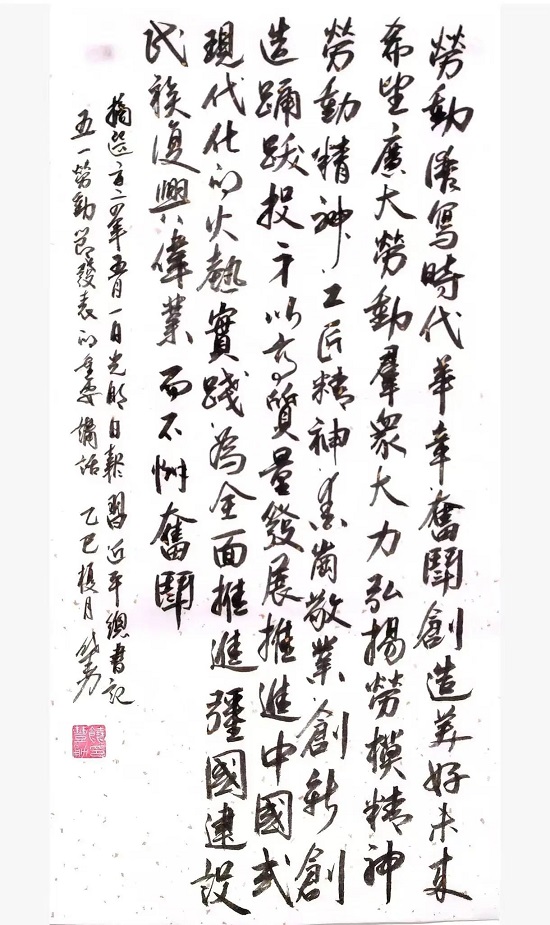 勞動譜寫時代華章奮鬭創造美好未来
希望廣大勞動羣衆大力弘揚勞模精神
勞動精神工匠精神崗敬業創新創
造踊躍投身以高質量發展推進中國式
現代化的火熱實踐為全面推進彊國建設
民族復興偉業而不懈奮鬭
摘選二四年五月一日光明日報習近平總書記
五一勞動節發表的重要講話 乙巳榎月